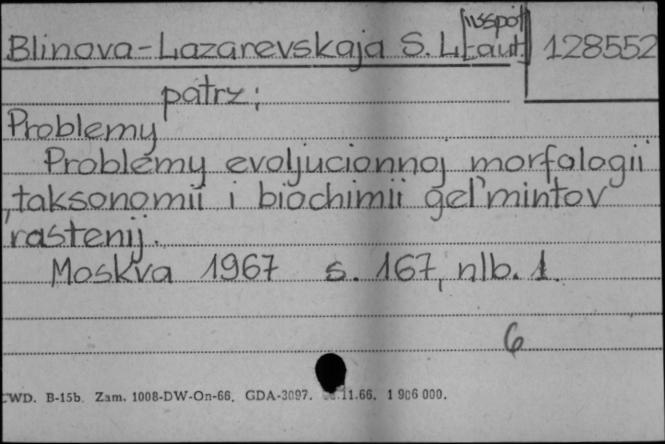 Blinova-Lazarevskaja S. L. [współ
aut.] 128552
patrz:
Problemy
Problemy evoljucionnoj morfologii
, taksonomii i biochimii gel'mintov
rastenij.
Moskva 1967 s. 167, nlb. 1.
6
CWD. B-15b. Zam. 1008-DW-On-66. GDA-3097. .11.66. 1 906 000.